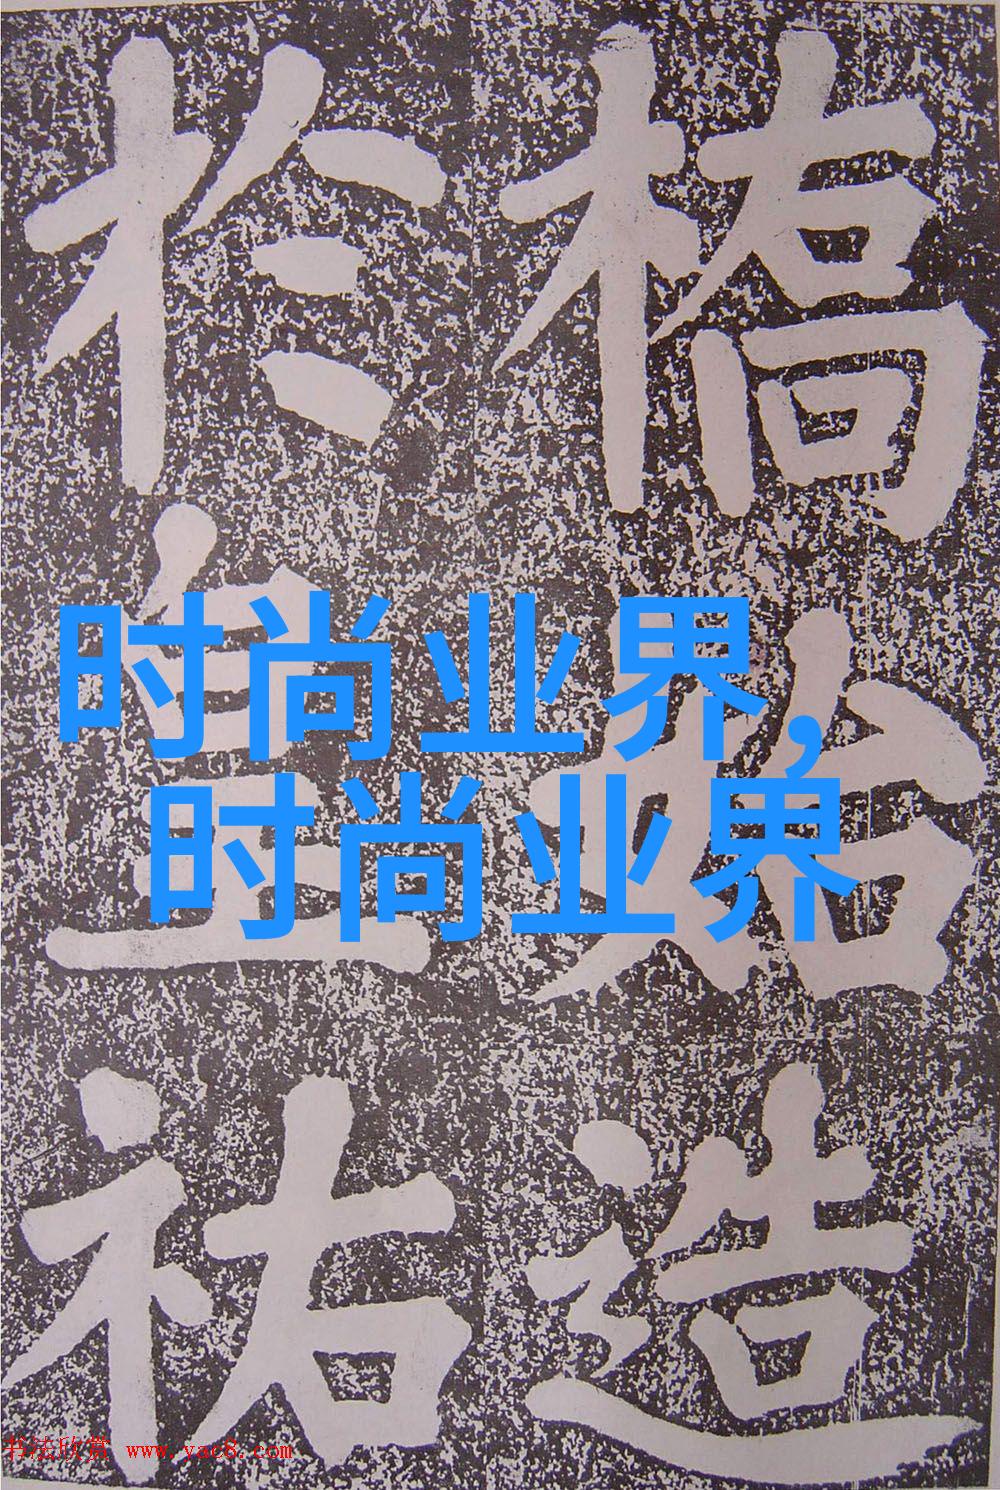 橋始造
於皇祐
时尚业界,
时尚业界
书法欣赏 www.yac8.com